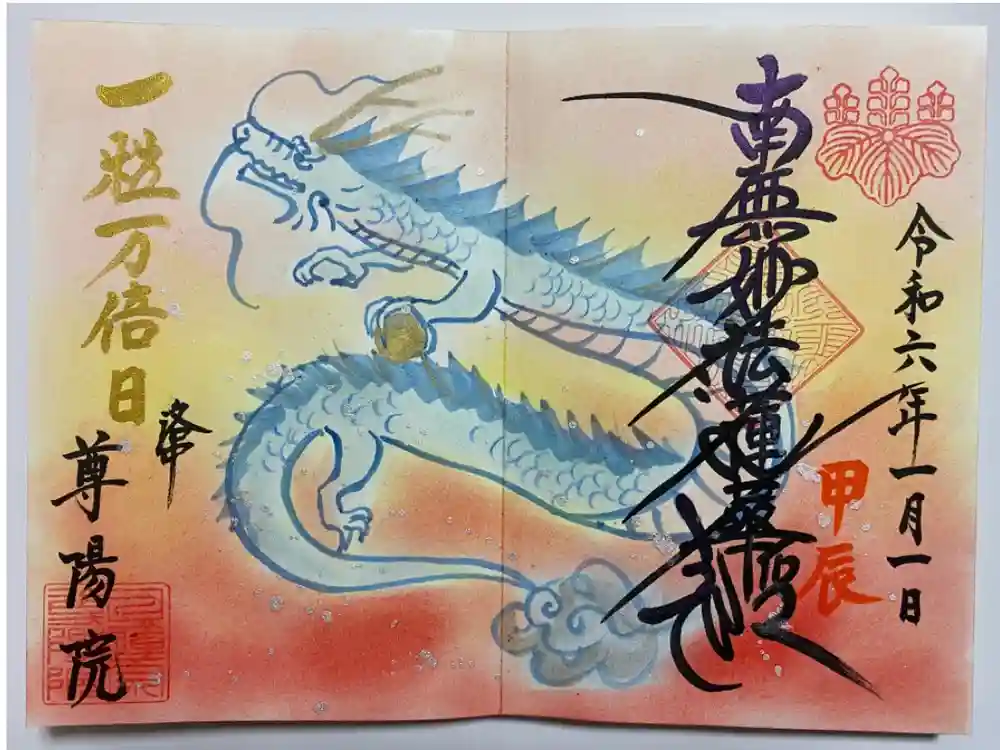 令和六年一月一日
甲辰
南無妙法蓮華経
一粒万倍日
洛中
尊陽院